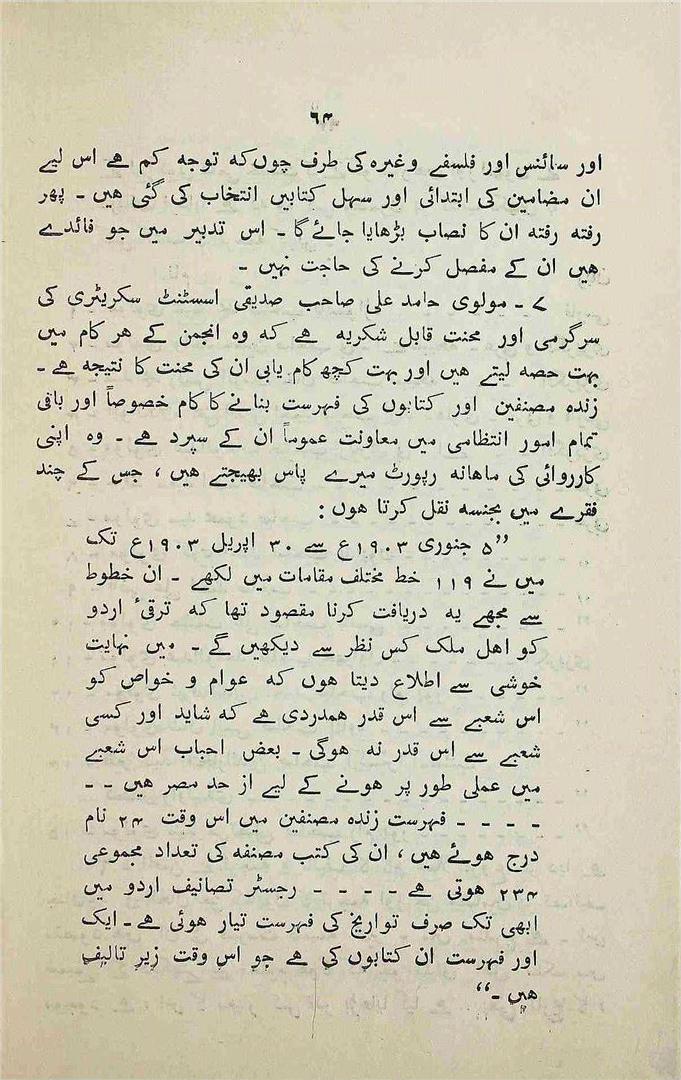 ۶۴
اور سائنس اور فلسفے وغیرہ کی طرف چوں کہ توجہ کم ھے اس لیے
ان مضامین کی ابتدائی اور سہل کتابیں انتخاب کی گئی ھیں - پھر
رفتہ رفتہ ان کا نصاب بڑھایا جائے گا - اس تدبیر میں جو فائدے
ھیں ان کے مفصل کرنے کی حاجت نہیں -
۷ - مولوی حامد علی صاحب صدیقی اسسٹنٹ سکریٹری کی
سرگرمی اور محنت قابل شکریہ ھے کہ وہ انجمن کے ھر کام میں
بہت حصہ لیتے ھیں اور بہت کچھ کام یابی ان کی محنت کا نتیجہ ھے -
زندہ مصنفین اور کتابوں کی فہرست بنانے کا کام خصوصاً اور باقی
تمام امور انتظامی میں معاونت عموماً ان کے سپرد ھے - وہ اپنی
کارروائی کی ماھانہ رپورٹ میرے پاس بھیجتے ھیں ، جس کے چند
فقرے میں بجنسہ نقل کرتا ھوں :
”۵ جنوری ۱۹۰۳ع سے ۳۰ اپریل ۱۹۰۳ع تک
میں نے ۱۱۹ خط مختلف مقامات میں لکھے - ان خطوط
سے مجھے یہ دریافت کرنا مقصود تھا کہ ترقیٔ اردو
کو اھل ملک کس نظر سے دیکھیں گے - میں نہایت
خوشی سے اطلاع دیتا ھوں کہ عوام و خواص کو
اس شعبے سے اس قدر ھمدردی ھے کہ شاید اور کسی
شعبے سے اس قدر نہ ھوگی - بعض احباب اس شعبے
میں عملی طور پر ھونے کے لیے از حد مصر ھیں - -
- - - - فہرست زندہ مصنفین میں اس وقت ۲۴ نام
درج ھوئے ھیں ، ان کی کتب مصنفہ کی تعداد مجموعی
۲۳۴ ھوتی ھے - - - - رجسٹر تصانیف اردو میں
ابھی تک صرف تواریخ کی فہرست تیار ھوئی ھے - ایک
اور فہرست ان کتابوں کی ھے جو اس وقت زیر تالیف
ھیں -“